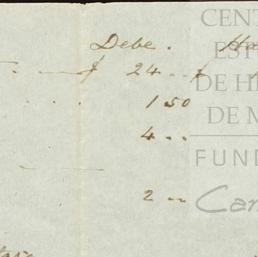 Debe. Ha
$ 24 .. $
1 50
4 ..
2 ..
CENT
EST
DE HI
DE M
FUND
Car